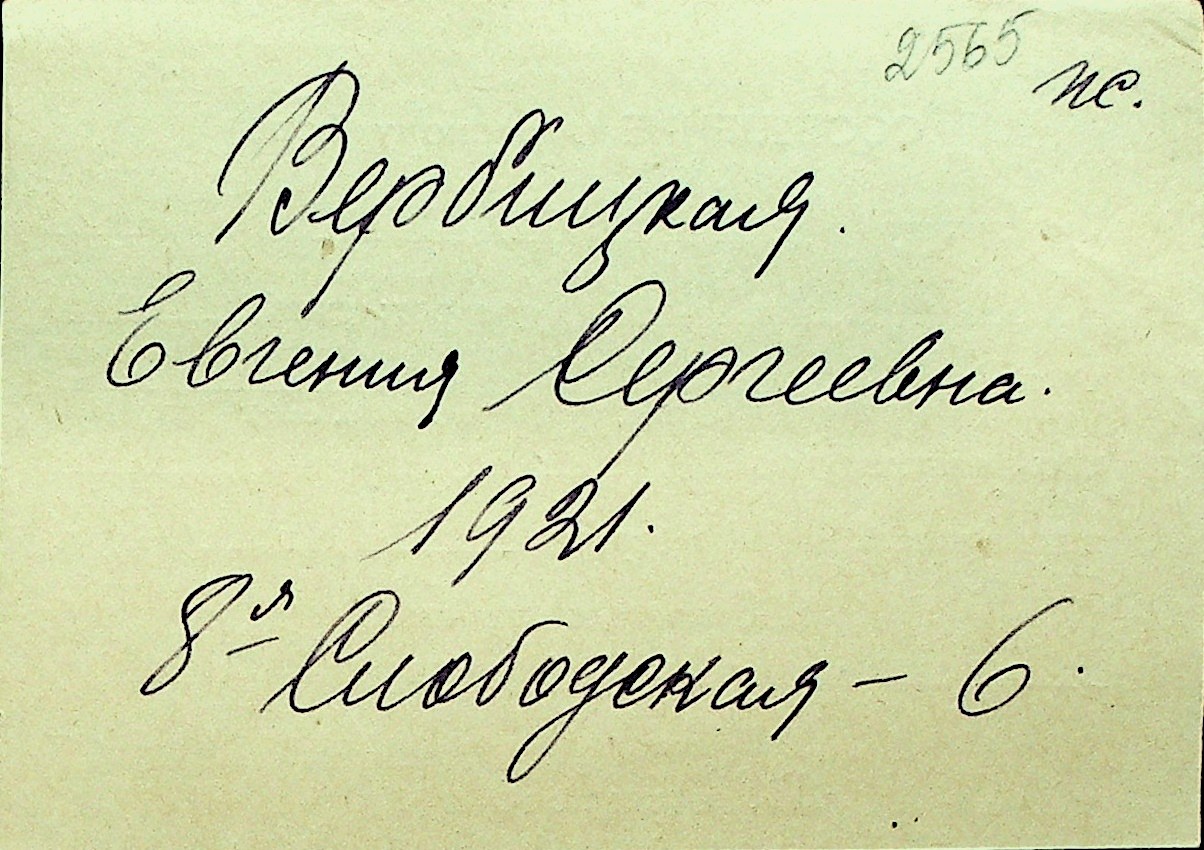 2565 пс.
Вербицкая.
Евгения Сергеевна.
1921.
8я Слободская – 6.